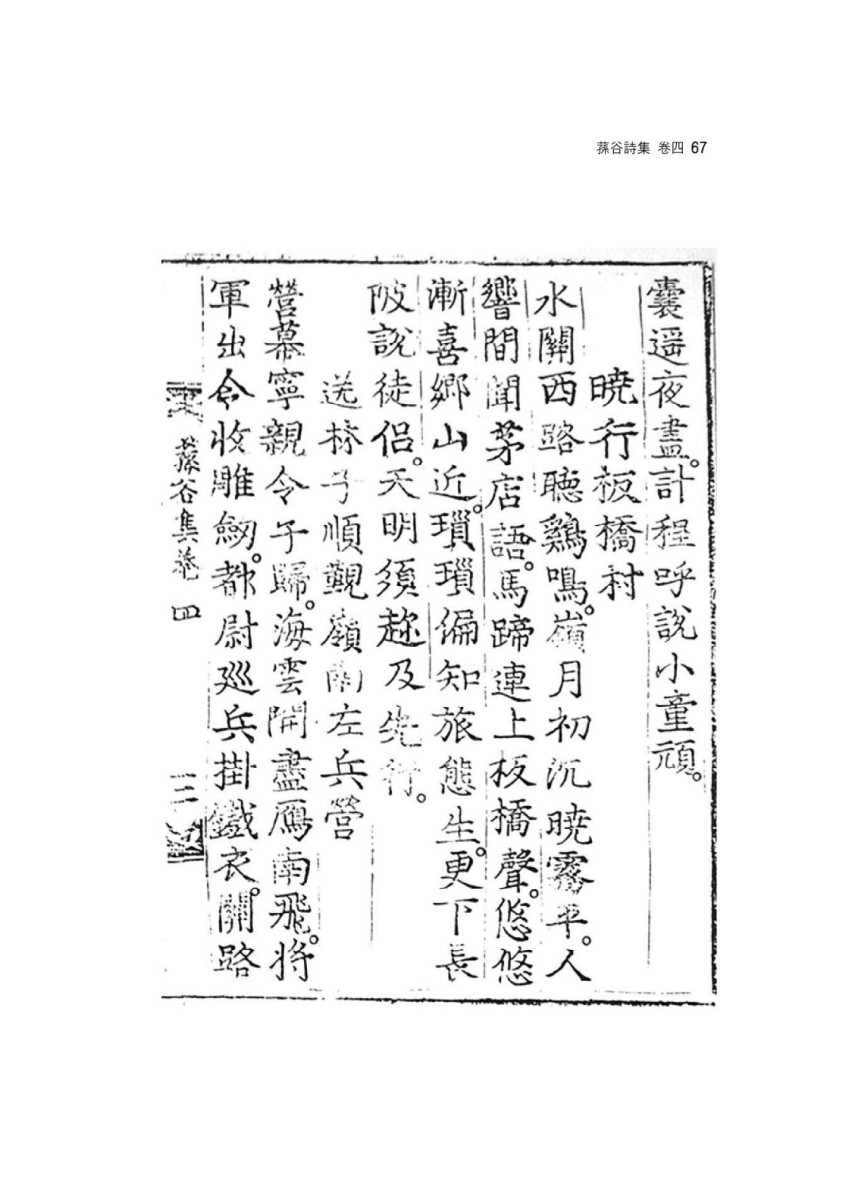 蓀谷詩集 卷四 67
囊遥夜盡。計程呼說小童頑。
曉行板橋村
水關西路聽鷄鳴。嶺月初沉曉霧平。人
響間聞茅店語。馬蹄連上板橋聲。悠悠
漸喜鄉山近。瑣瑣偏知旅態生。更下長
陂說徒侶。天明須趂及先行。
送林子順覲嶺南左兵營
營幕寧親令子歸。海雲開盡鴈南飛。將
軍出令收雕劒。都尉廵兵掛鐵衣。關路
蓀谷集卷四 三